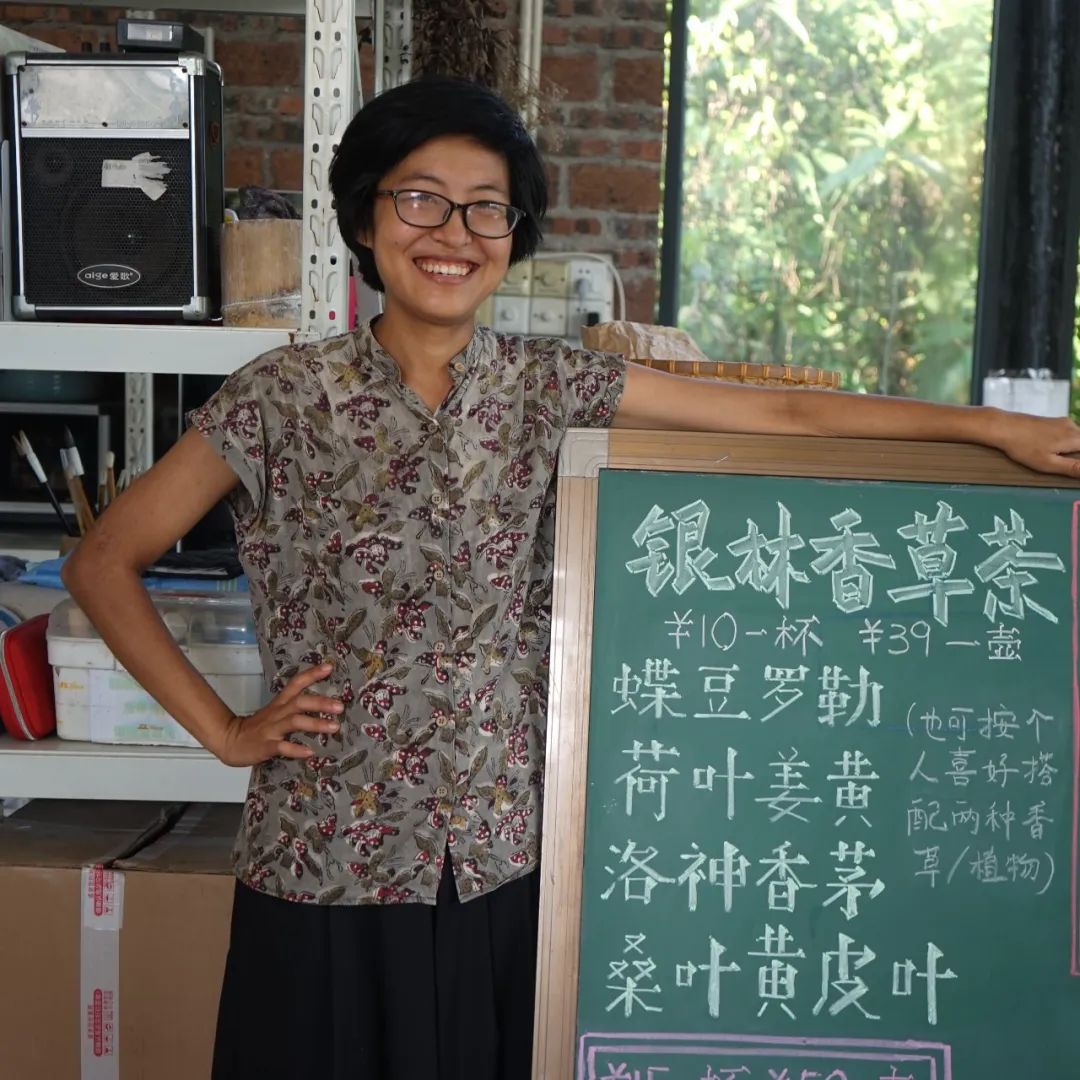 aige爱歌
银林香草茶
¥10一杯 ¥39一壶
蝶豆罗勒
荷叶姜黄
洛神香茅
桑叶黄皮叶
(也可按个
人喜好搭
配两种香
草/植物)